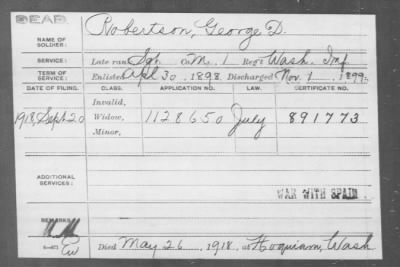 DEAD
NAME OF SOLDIER: Robertson, George D.
SERVICE: Late rank Sgt Co M. 1 Reg't Wash. Inf.
TERM OF SERVICE: Enlisted Apl 30, 1898. Discharged Nov. 1, 1899.
DATE OF FILING. CLASS. APPLICATION NO. LAW. CERTIFICATE NO.
Invalid,
1918, Sept 20 Widow, 1128650 July 891773
Minor,
ADDITIONAL SERVICES:
WAR WITH SPAIN.
REMARKS
Died May 26, 1918, at Hoquiam, Wash